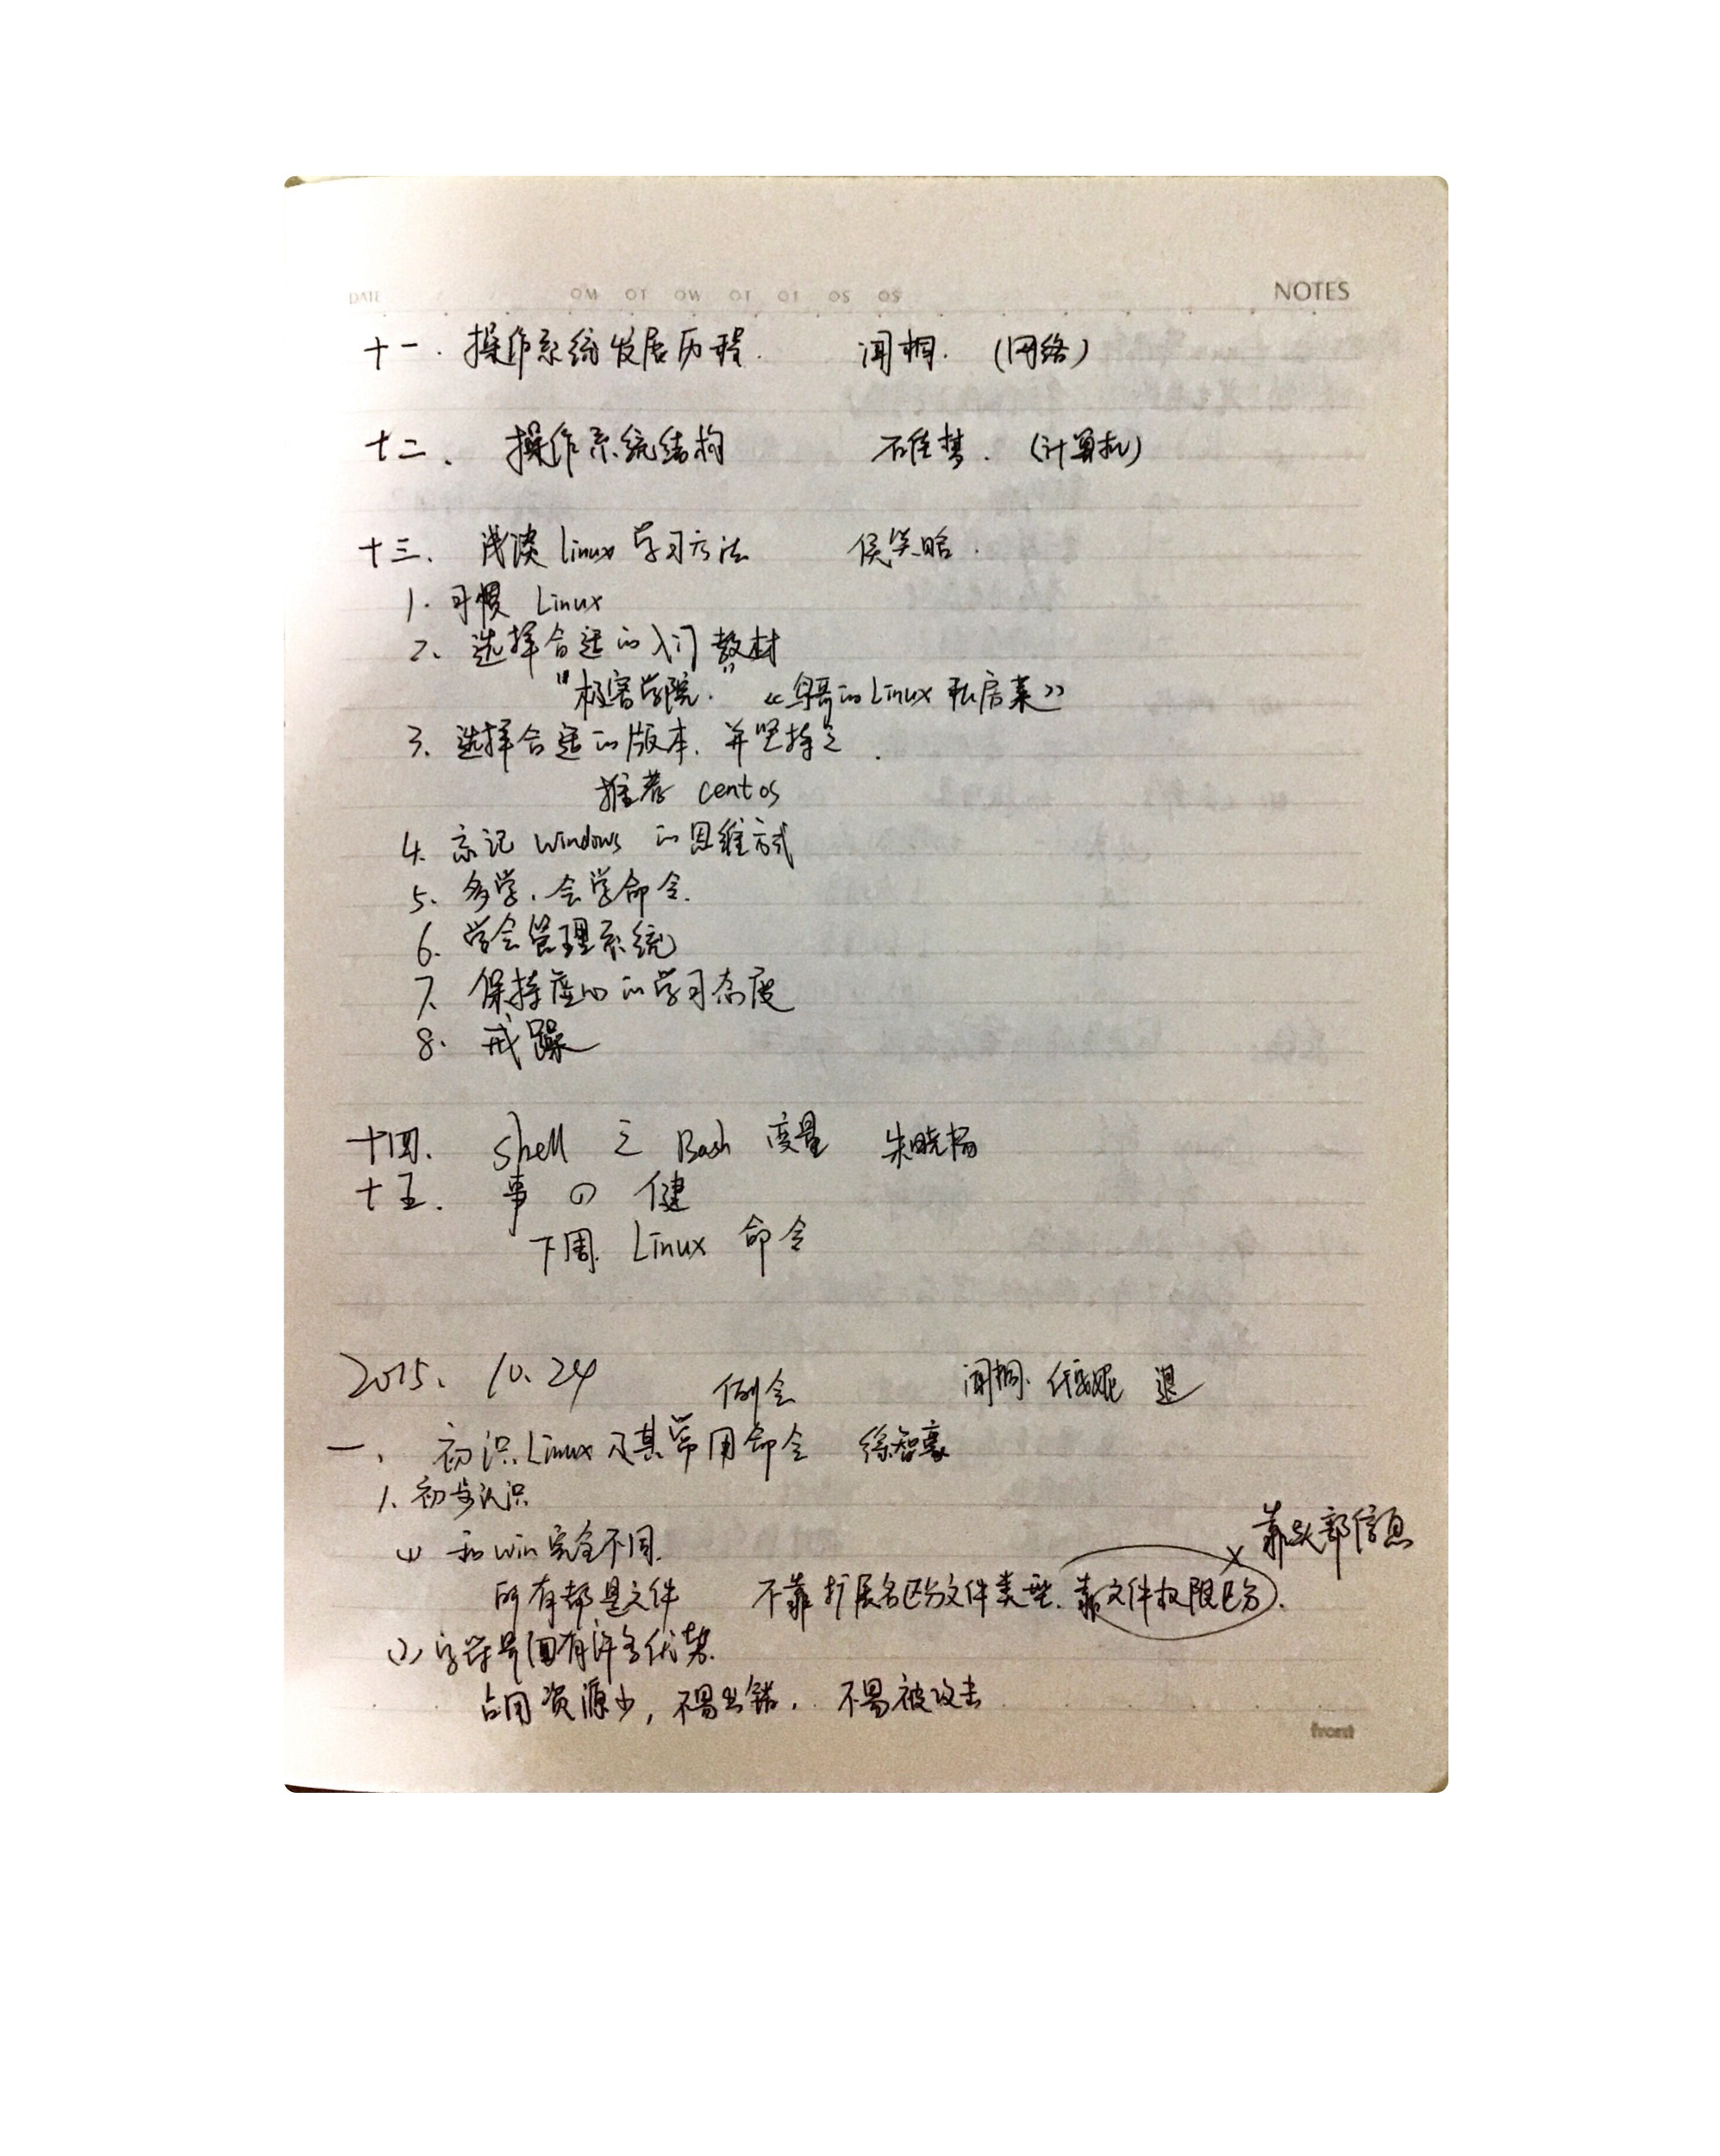 DATE OM OT OW OT OT OS OS NOTES
十一. 操作系统发展历程. 闻桐. (网络)
十二、 操作系统结构 石佳梦. (计算机)
十三、 浅谈 linux 学习方法 侯笑晗.
1. 习惯 Linux
2、选择合适的入门教材
"极客学院." 《鸟哥的Linux 私房菜》
3. 选择合适的版本. 并坚持之.
推荐 centos
4. 忘记 windows 的思维方式
5. 多学. 会学命令.
6. 学会管理系统
7. 保持虚心的学习态度
8. 戒躁
十四. shell 之 Bash 变量 朱晓杨
十五. 事 の 健
下周. Linux 命令
2015. 10.24 例会 闻桐. 退
一、 初识 Linux 及其常用命令 徐智豪
1. 初步认识
(1) 和 win 完全不同.
靠头部信息
所有都是文件 不靠扩展名区分文件类型. 靠文件权限区分. ×
(2) 字符界面有许多优势.
占用资源少, 不易出错. 不易被攻击
front